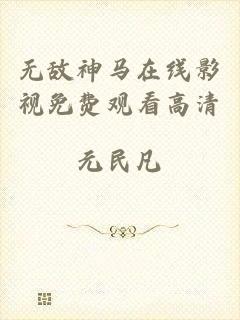 无敌神马在线影
视免费观看高清
元民凡